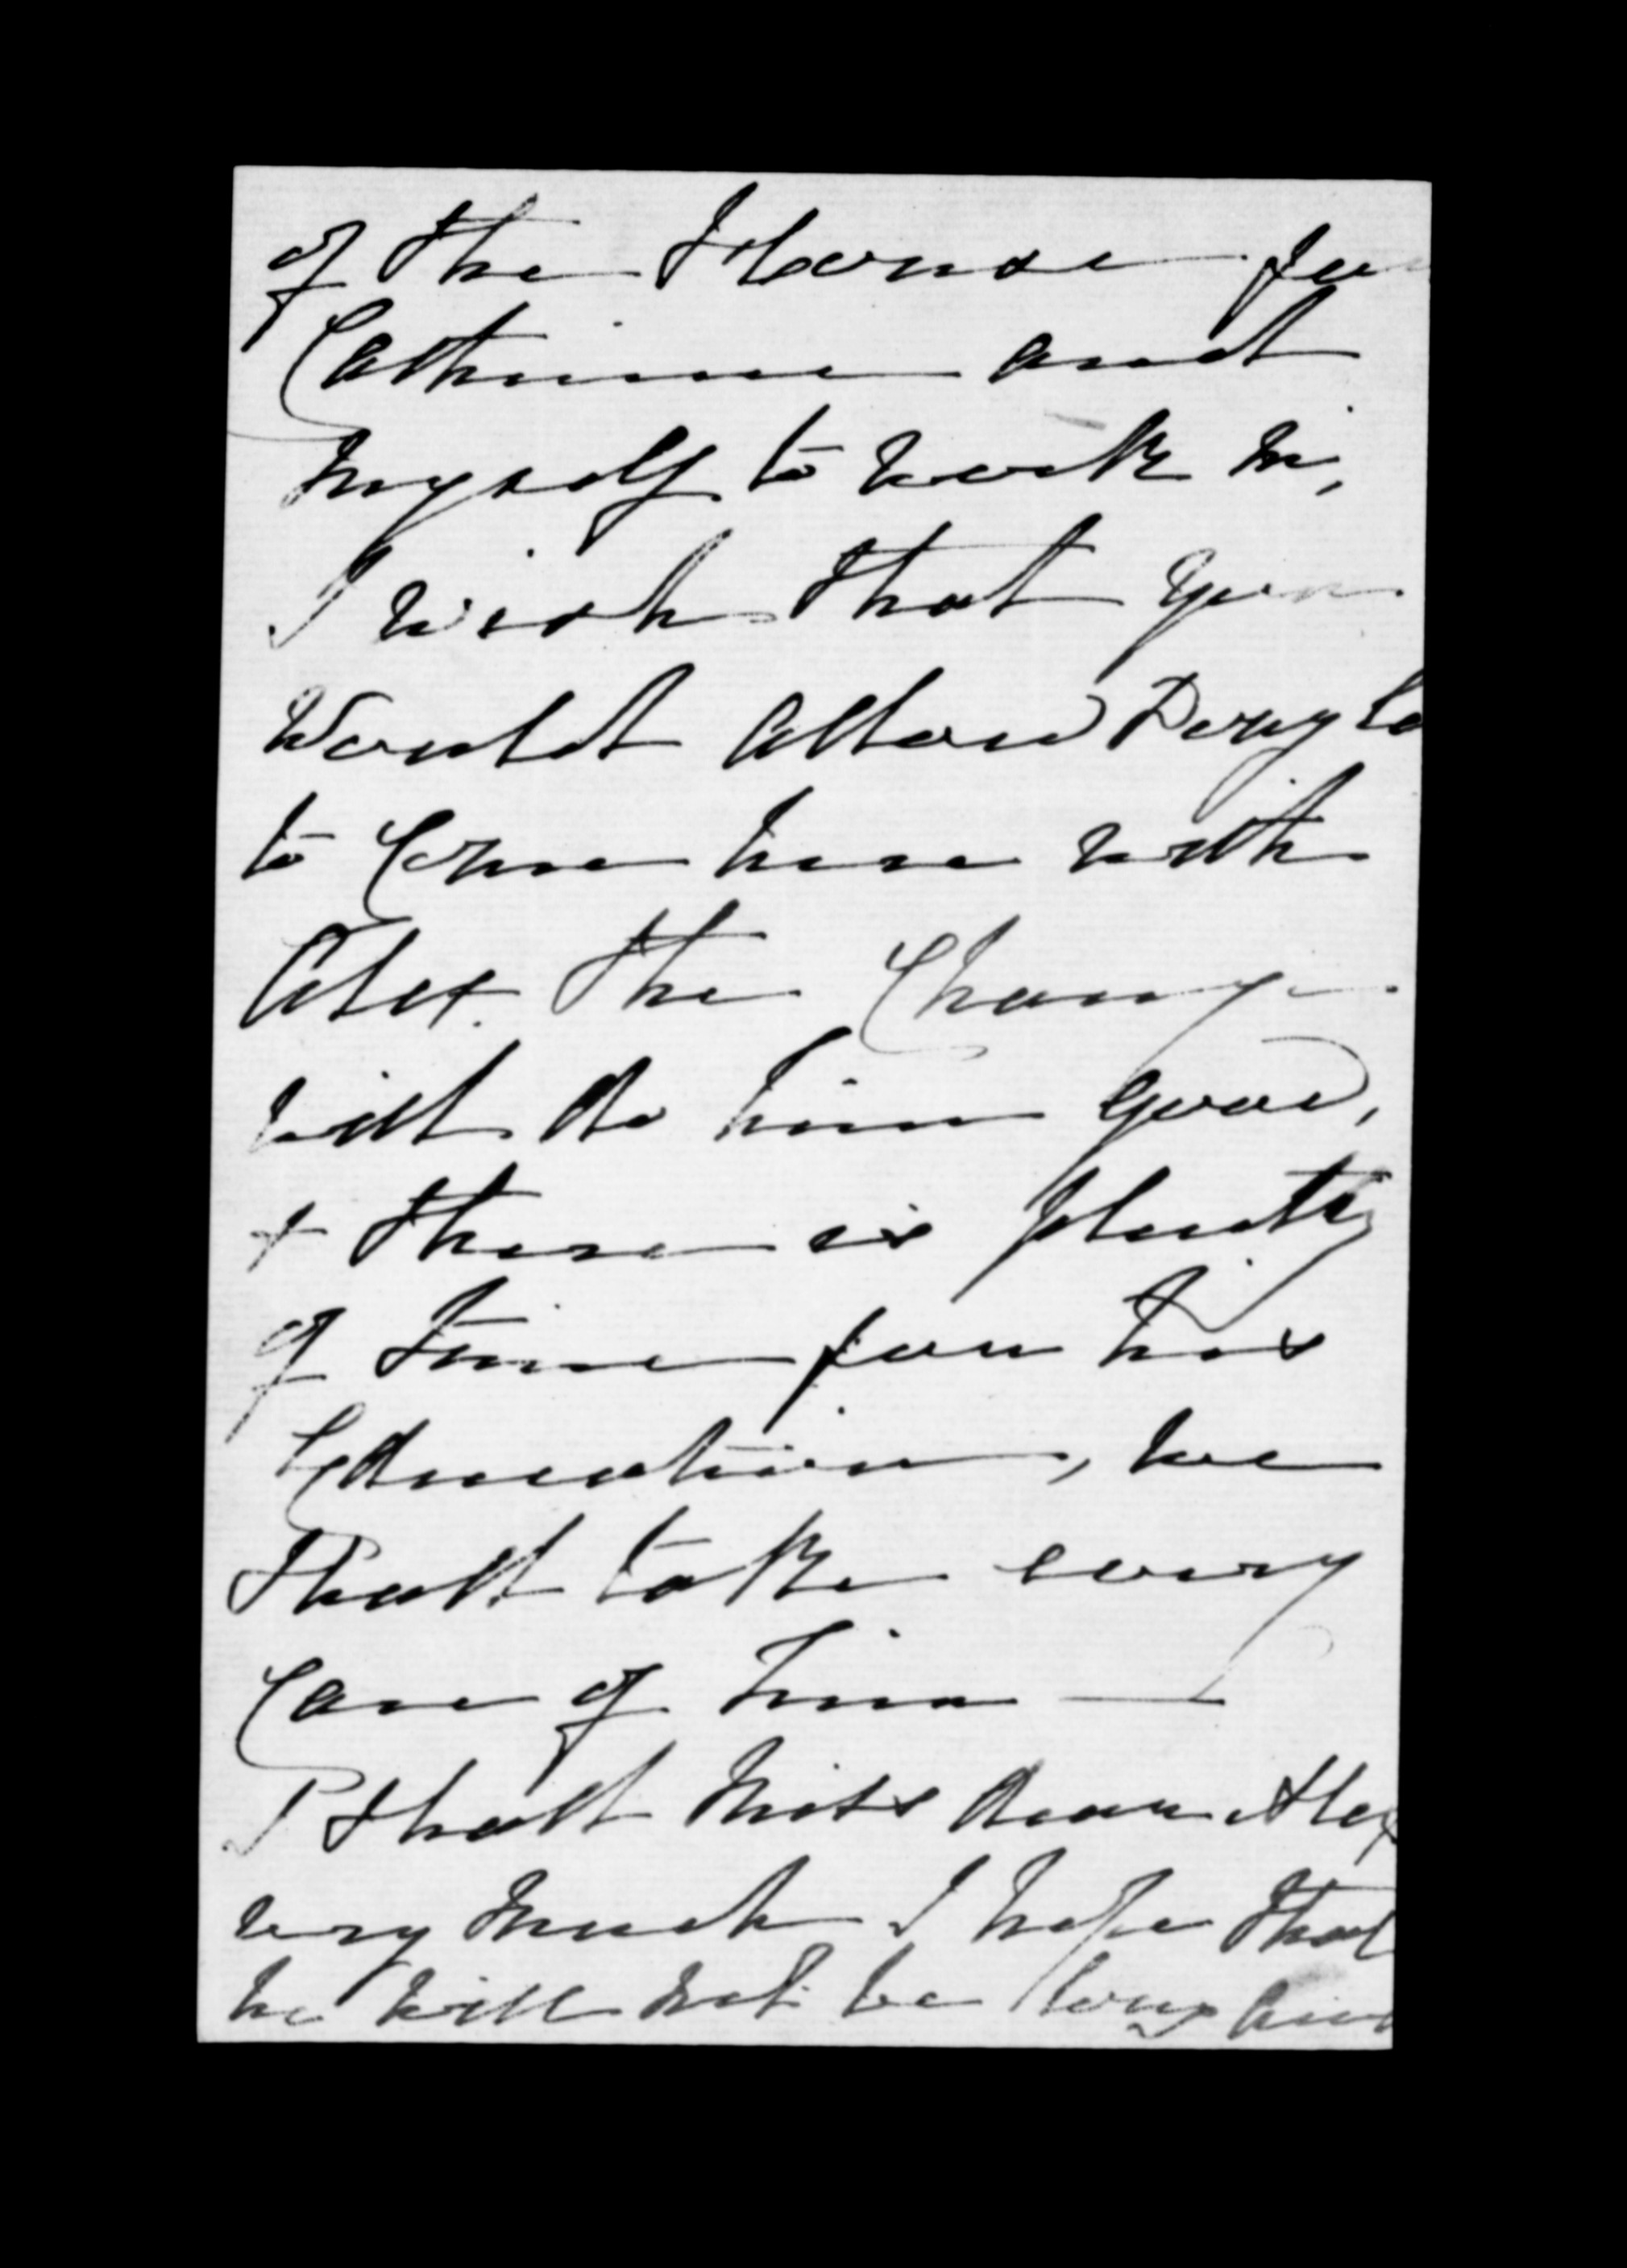 of the House for
Cathrine and
myself to work in,
I wish that you
would allow to
to come here with
Alex. the Change
will do him good,
+ there is plenty
of time for his
Education, we
Shall take every
Care of him —
I shall miss dear Alex
very much I hope that
he will not be long